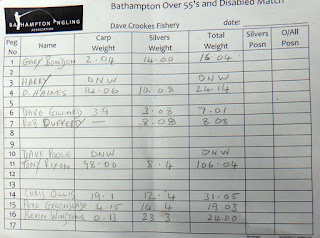 BATHAMPTON ANGLING
ASSOCIATION
Bathampton Over 55's and Disabled Match
Dave Crookes Fishery date:
Peg No Name Carp Weight Silvers Weight Total Weight Silvers Posn O/All Posn
1 GARY BOWDEN 2.04 14.00 16.04
2
3 HARRY DNW DNW
4 D. HAINES 14.06 10.08 24.14
5
6 DAVE GILLARD 3.9 3.08 7.01
7 ROB DUFFERTY — 8.08 8.08
8
9
10 DAVE POOLE DNW DNW
11 TONY RIXON 98.00 8.4 106.04
12
13
14 CHRIS OLLIS 19.1 12.4 31.05
15 PETE GREENSLADE 4.15 14.4 19.03
16 KEVIN WINSTONE 0.13 23.3 24.00
17